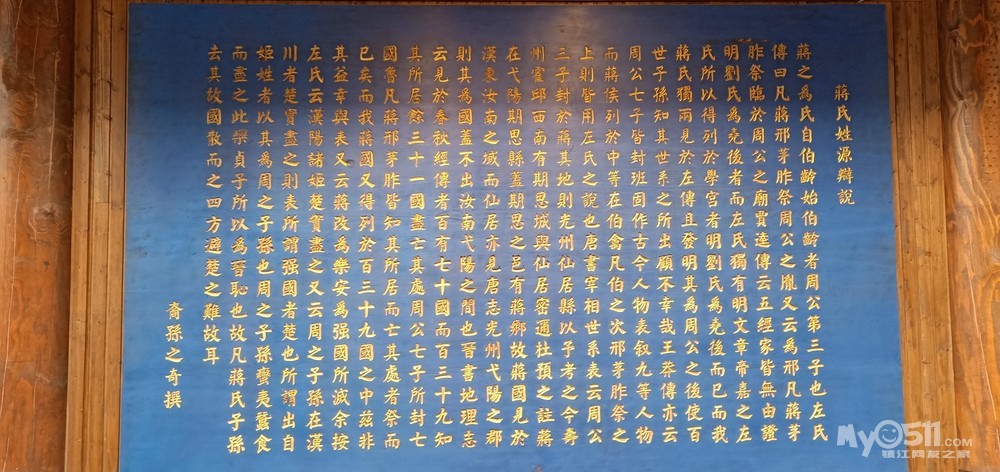 蔣氏姓源辯說
蔣之為氏自伯齡始伯齡者周公第三子也左氏
傳曰凡蔣邢茅胙祭周公之胤又云為邢凡蔣茅
胙祭臨於周公之廟賈逵傳云五經家皆無由證
明劉氏為堯後者而左氏獨有明文章帝嘉之左
氏所以得列於學宮者明劉氏為堯後而已而我
蔣氏獨兩見於左傳且發明其為周公之後使百
世子孫知其世系之所出顧不幸哉王莽傳亦云
周公七子皆封班固作古今人物表叙九等人物
而蔣侯列於中等在伯禽凡伯之次邢茅胙祭之
上則皆用左氏之說也唐書宰相世系表云周公
三子封於蔣其地則光州仙居縣以子考之今壽
州霍邱西南有期思城與仙居密邇杜預之註蔣
在弋陽期思縣蓋期思之邑有蔣鄉故蔣國見於
漢東汝南之域而仙居亦見唐志光州弋陽之郡
則其為國蓋不出汝南弋陽之間也晉書地理志
云見於春秋經傳者百有七十國而百三十九知
其所居餘三十一國盡亡其處周公七子所封七
國魯凡蔣邢茅胙皆知其所居而亡其處者祭而
已矣而我蔣國又得列於百三十九國之中茲非
其益幸與表又云蔣改為樂安為强國所滅余按
左氏云漢陽諸姬楚實盡之又云周之子孫在漢
川者楚實盡之則表所謂强國者楚也所謂出自
姬姓者以其為周之子孫也周之子孫蠻夷蠶食
而盡之此欒貞子所以為晉恥也故凡蔣氏子孫
去其故國散而之四方避楚之難故耳
裔孫之奇撰
My0511.COM
镇江网友之家